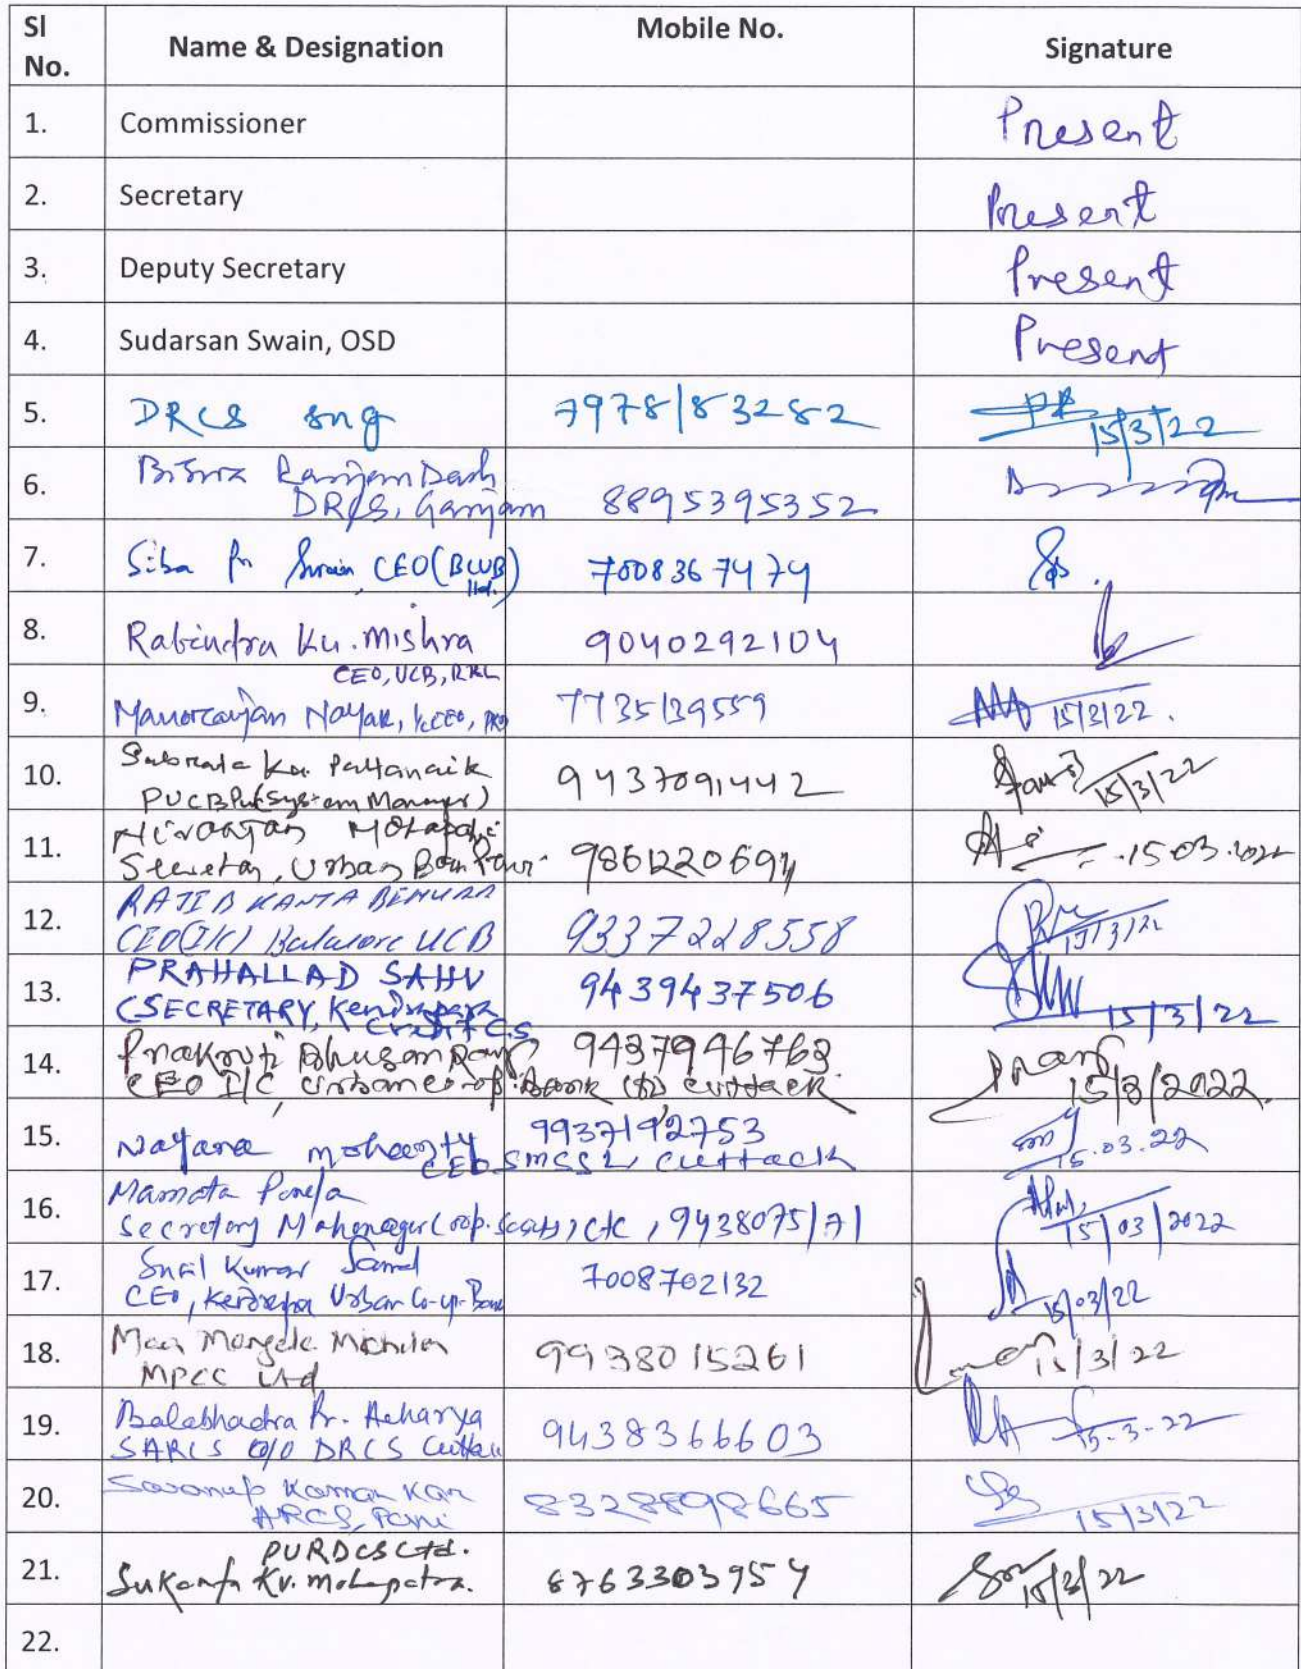 Sl No. Name & Designation Mobile No. Signature
1. Commissioner Present
2. Secretary Present
3. Deputy Secretary Present
4. Sudarsan Swain, OSD Present
5. DRCS 7978183282 15/3/22
6. Ranjan Dash
DRCS, Ganjam 8895395352
7. Siba Swain, CEO (BCUB) ltd. 7008367474
8. Rabindra Ku. Mishra 9040292104
CEO, UCB, RKL
9. Manoranjan Nayak, 7735139559 15/3/22.
10. Subrata Ku. Pattanaik
PUCB (System Manager) 9437091442 15/3/22
11. Niranjan
Secretary, Urban Bank 15.03.2022
12. RAJIB KANTA BEHURA
CEO(I/C) Balasore UCB 9337228558 15/3/22
13. PRAHALLAD SAHU
(SECRETARY, Kendrapara
Credit C.S 9439437506 15/3/22
14. Prakruti Bhusan 9437946763
CEO I/C, Urban Coop. Bank Cuttack. 15/3/2022.
15. Nayana Mohanty 9937192753
CEO SMSS L, Cuttack 15.03.22
16. Mamata
Secretary Mahanagar Coop. , CTC, 9438075171 15/03/2022
17. Sunil Kumar Samal
CEO, Urban Co-op. Bank 7008702132 15/03/22
18. Maa Mangala
MPCC Ltd 9938015261 15/3/22
19. Balabhadra Pr. Acharya
SARCS O/O DRCS Cuttack 9438366603 15-3-22
20. Kumar Kar
ARCS, 8328898665 15/3/22
21. PURDCS Ltd.
Sukanta Kr. Mohapatra. 8763303954 15/3/22
22.